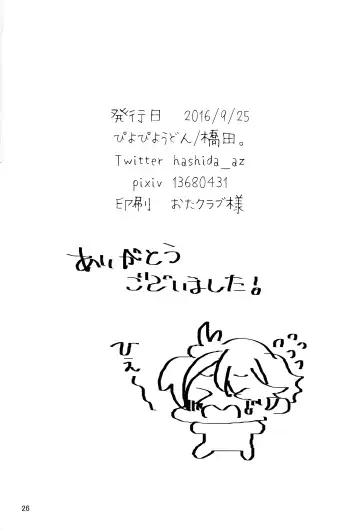 発行日 2016/9/25
ぴよぴようどん/橋田。
Twitter hashida_az
pixiv 13680431
印刷 おたクラブ様
ありがとう
ございました!
ひぇー
26